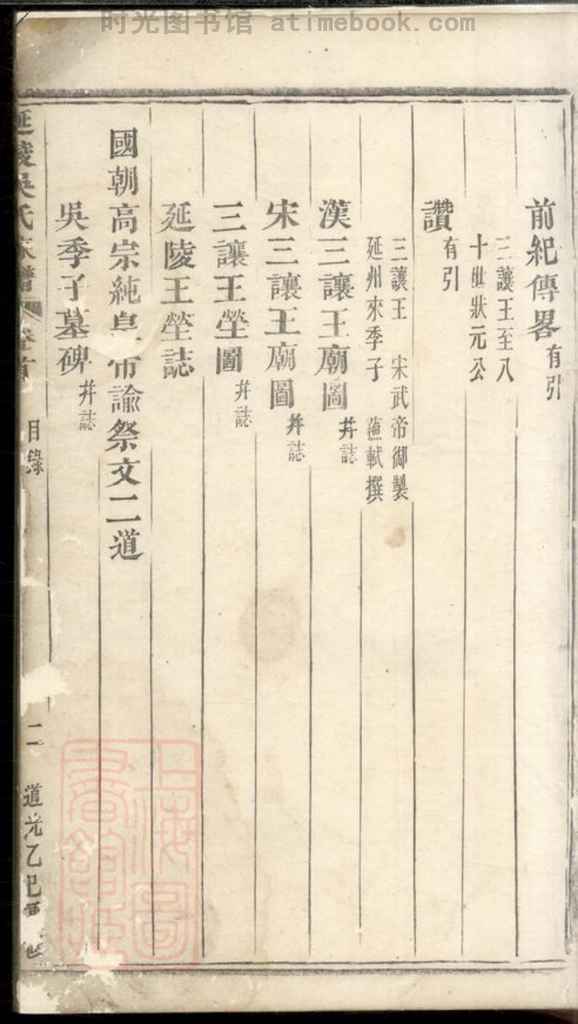 时光图书馆 atimebook.com
前紀傳畧 有引
三讓王至八
十世狀元公
讚 有引
三讓王 宋武帝御製
延州來季子 蘓軾撰
漢三讓王廟圖 并誌
宋三讓王廟圖 并誌
三讓王塋圖 并誌
延陵王塋誌
國朝高宗純皇帝諭祭文二道
吳季子墓碑 并誌
延陵吳氏宗譜 卷首 目錄 二 道光乙巳
上海圖書館藏